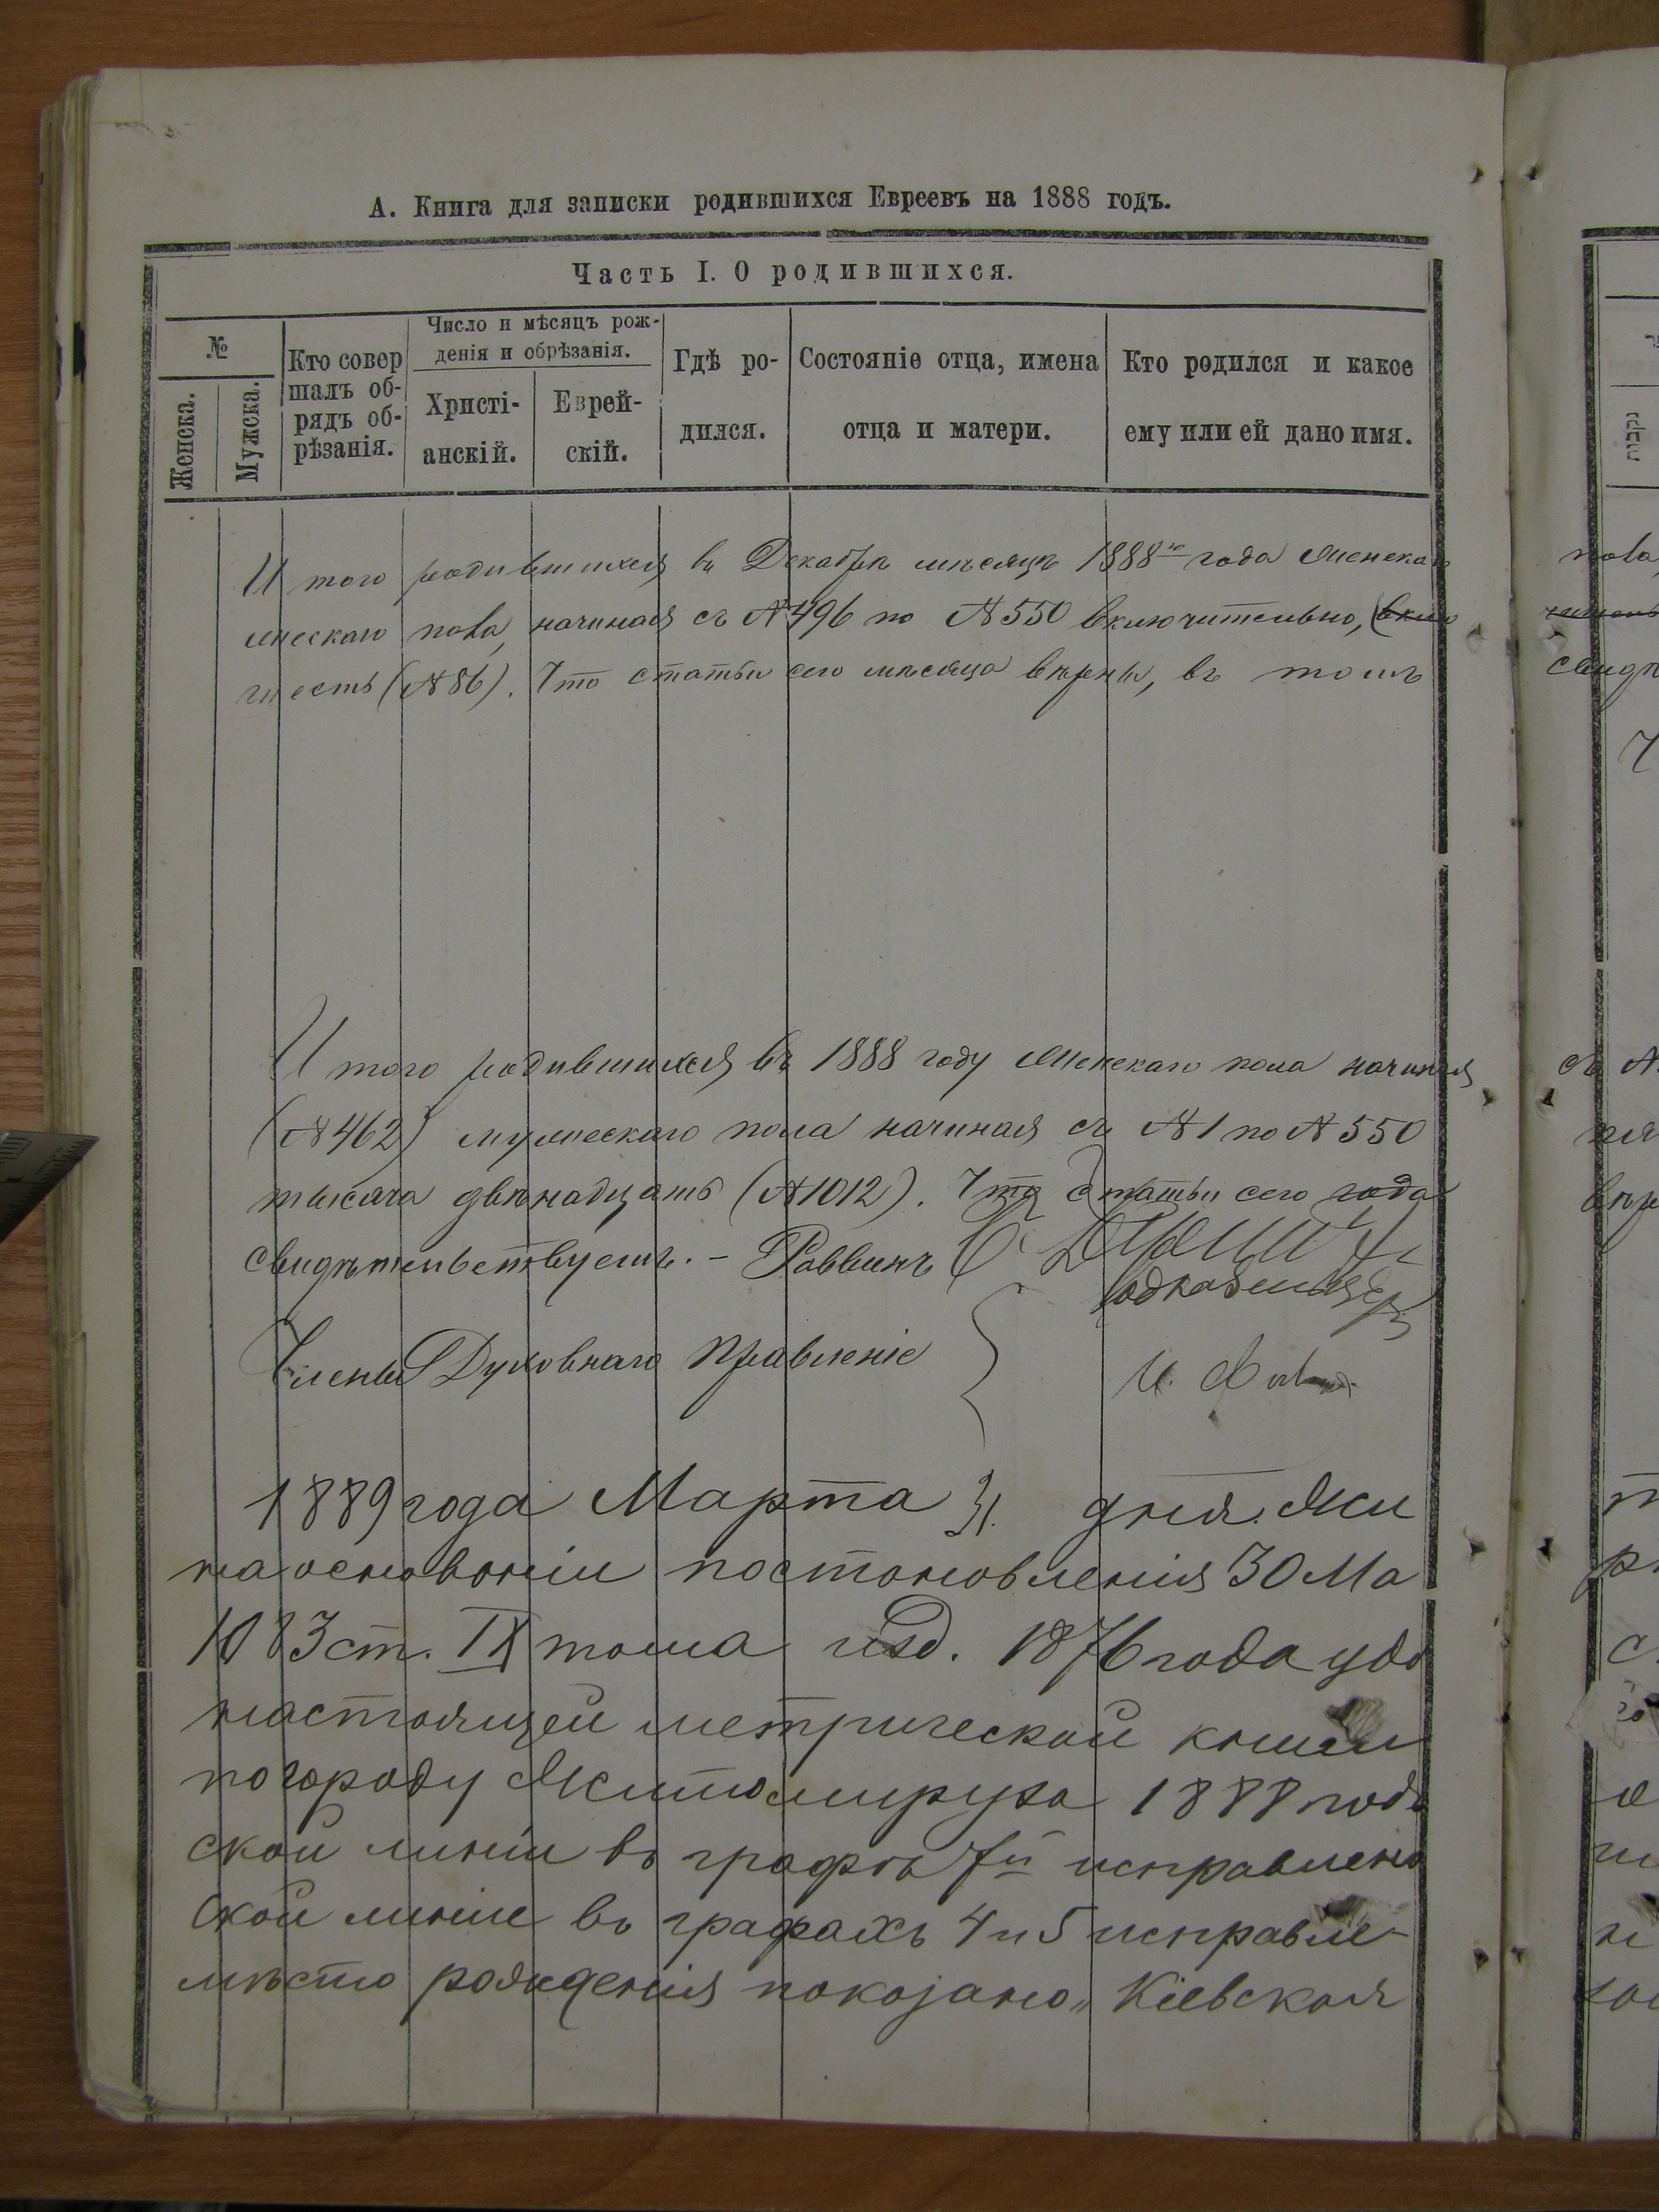 А. Книга для записки родившихся Евреевъ на 1888 годъ.
Часть I. О родившихся.
№
Женска.
Мужска.
Кто совер
шалъ об-
рядъ об-
рѣзанія.
Число и мѣсяцъ рож-
денія и обрѣзанія.
Христі-
анскій.
Еврей-
скій.
Гдѣ ро-
дился.
Состояніе отца, имена
отца и матери.
Кто родился и какое
ему или ей дано имя.
Итого родившихся въ Декабрѣ мѣсяцѣ 1888го года Женскаго
мжескаго пола, начиная съ №496 по №550 включительно,
шесть (№86). Что статьи сего мѣсяца вѣрны, въ томъ
Итого родившихся въ 1888 году Женскаго пола начиная
(№462) мужескаго пола начиная съ №1 по №550
тысяча двѣнадцать (№1012). Что статьи сего года
свидѣтельствуемъ. – Раввинъ
Члены Духовнаго Правленіе
И.
1889 года Марта 31. дня. Жи
на основаніи постановленія 30 Ма
1083 ст. IX тома изд. 1876 года удо
настоящей метрической книги
по городу Житомиру за 1888 годъ
ской линіи въ графѣ 7й исправлено
ской линіи въ графахъ 4 и 5 исправле-
мѣсто рожденія показано „Кіевская